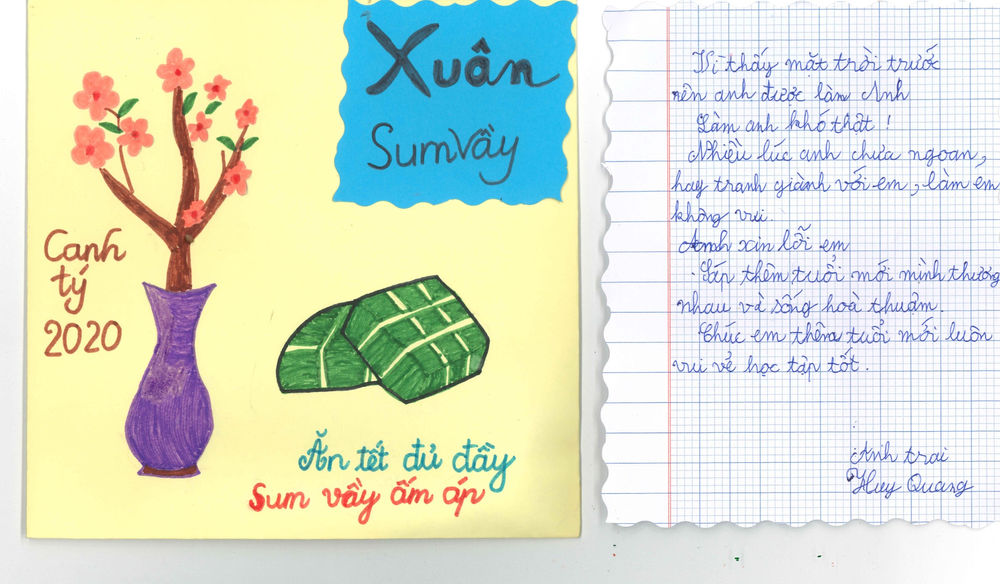 Xuân
Sum Vầy
Canh
tý
2020
Ăn tết đủ đầy
Sum vầy ấm áp
Vì thấy mặt trời trước
nên anh được làm Anh
Làm anh khó thật !
Nhiều lúc anh chưa ngoan,
hay tranh giành với em, làm em
không vui.
Anh xin lỗi em
Sắp thêm tuổi mới mình thương
nhau và sống hoà thuận.
Chúc em thêm tuổi mới luôn
vui vẻ học tập tốt.
Anh trai
Huy Quang